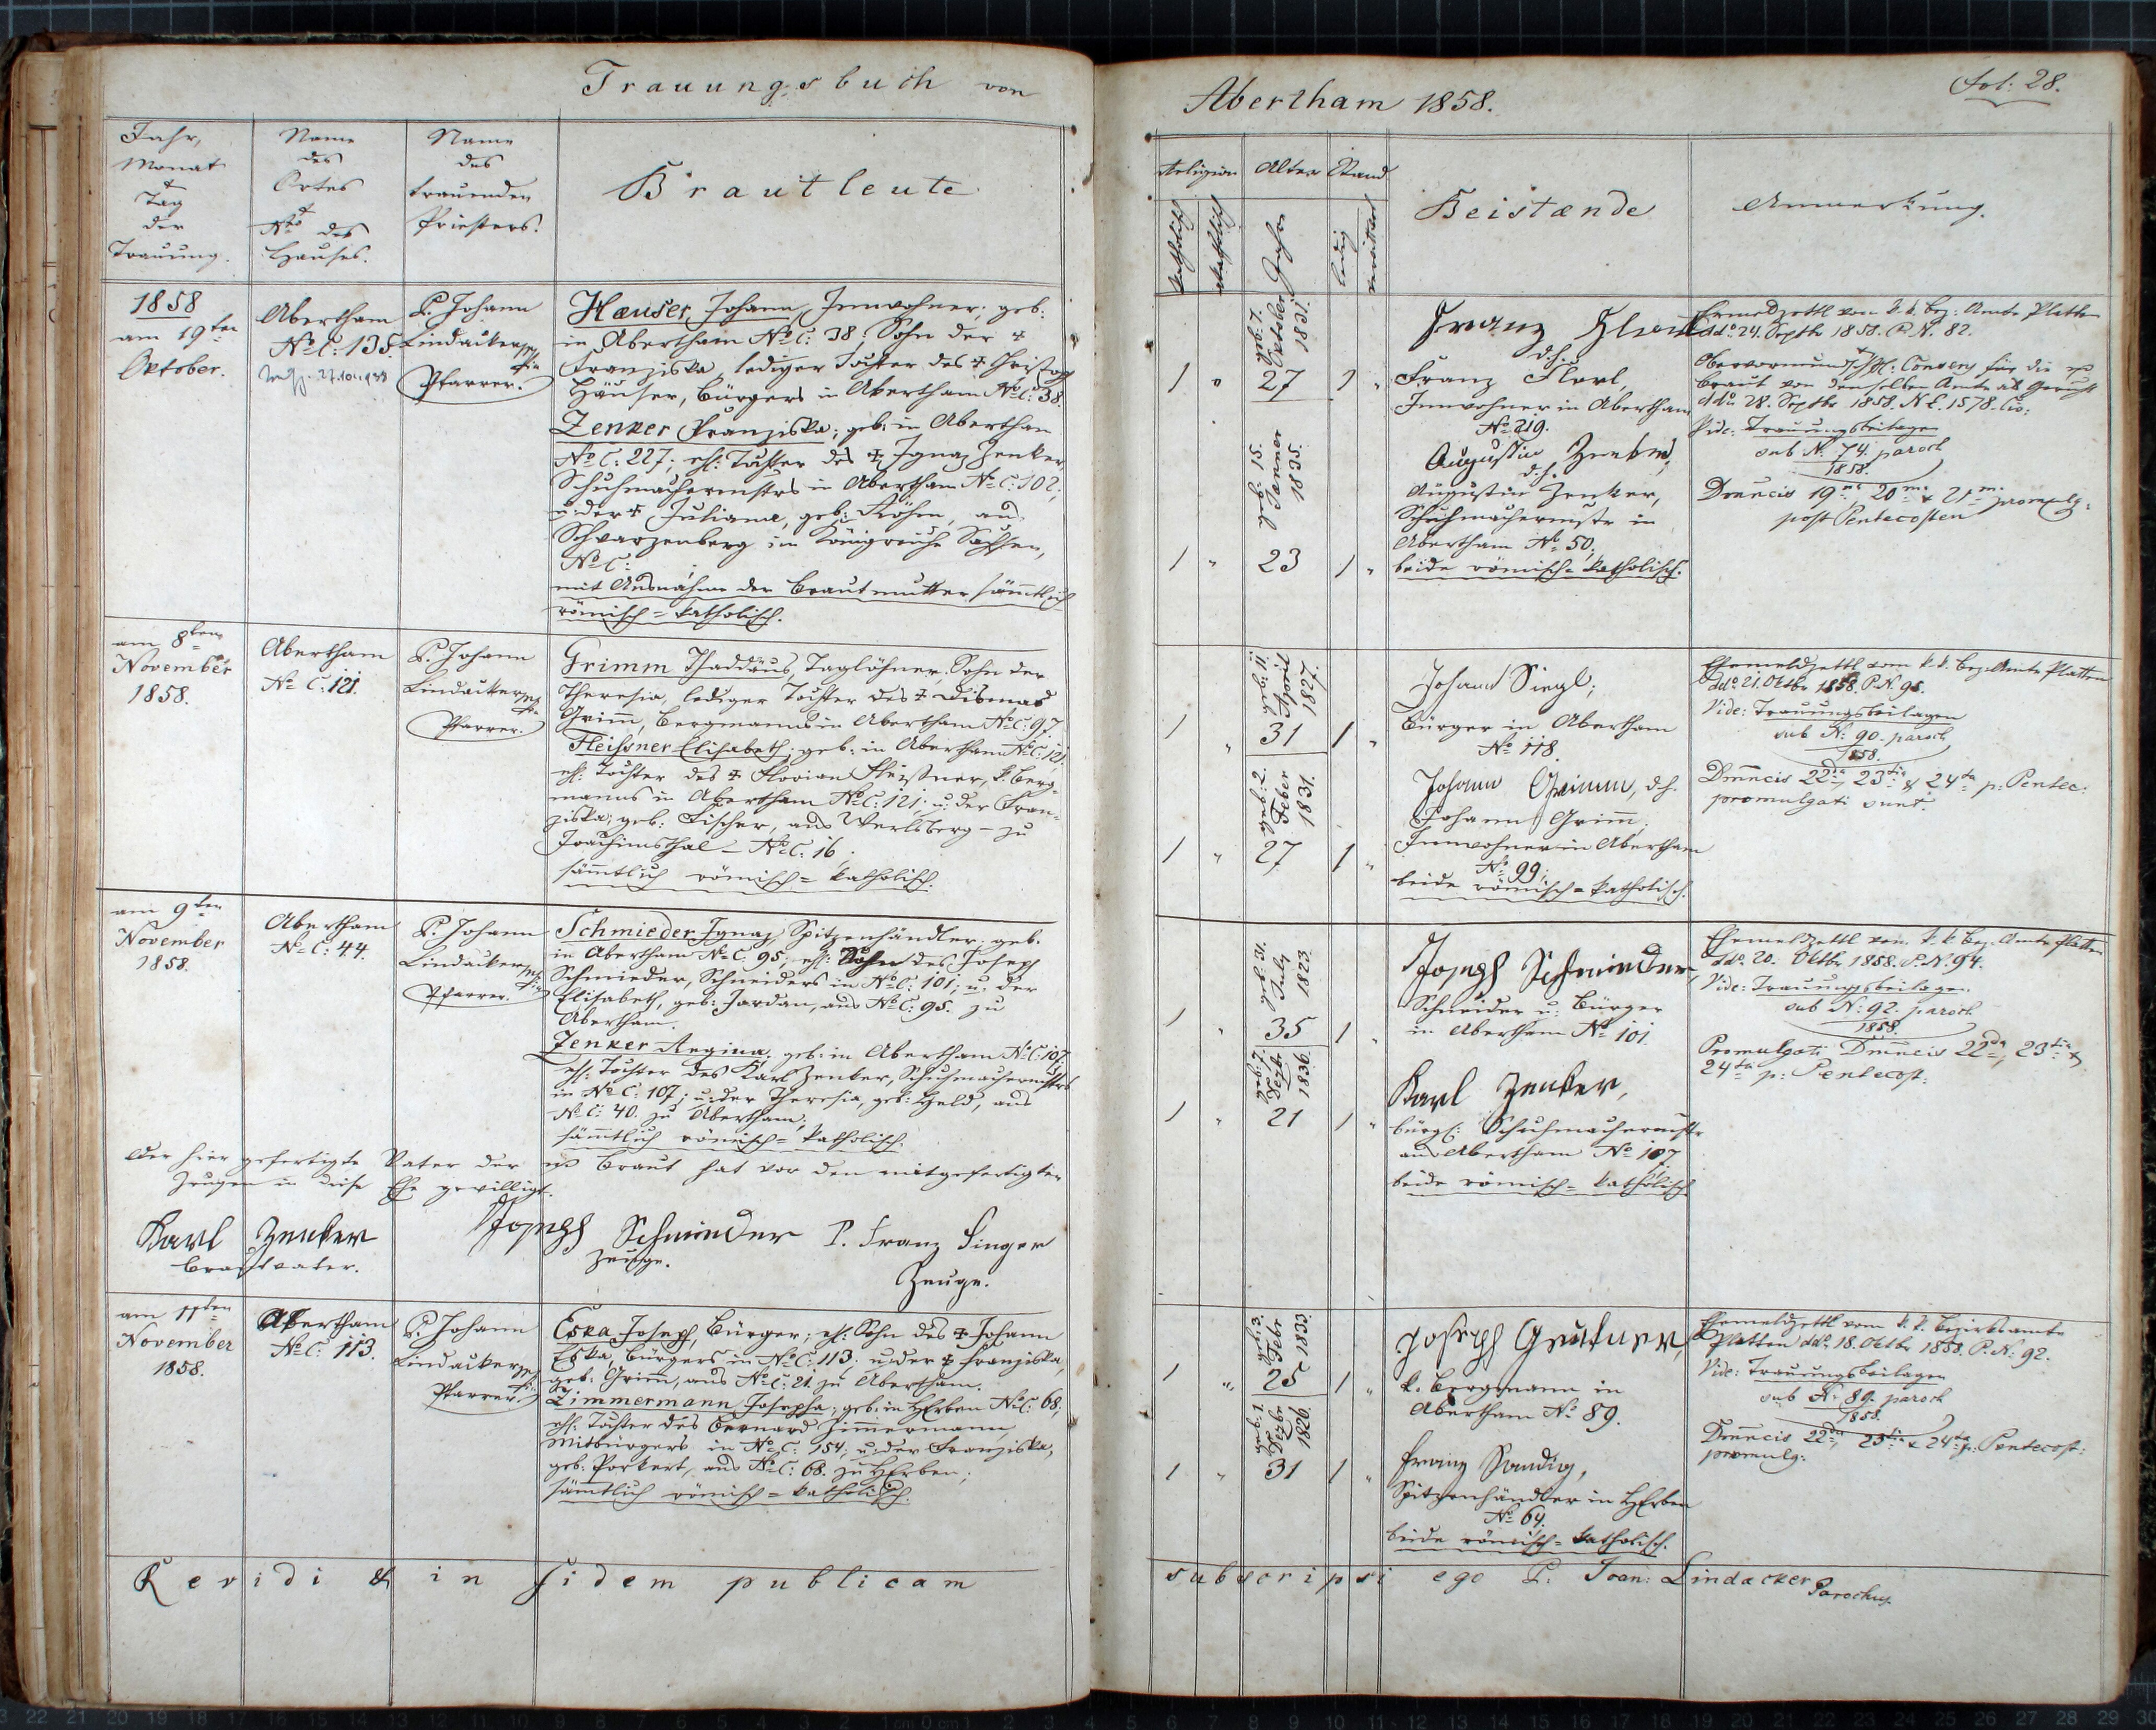 Trauungsbuch von
Jahr,
Monat
&
Tag
der
Trauung.
Name
des
Ortes
&
Nro des
Hauses.
Name
des
trauenden
Priesters.
Brautleute
1858
am 19ten
Oktober.
Abertham
No C: 135.
P. Johann
Lindacker
Pfarrer.
Hæuser Johann, Innwohner; geb:
in Abertham No C: 38; Sohn der †
Franziska, lediger Tochter des † Christoph
Häuser, Bürgers in Abertham No C: 38.
Zenker Franziska; geb: in Abertham
No C: 227; ehl: Tochter des † Ignaz Zenker,
Schuhmachermstrs in Abertham No C: 102;
u: der † Juliana, geb: Köhm, aus
Schwarzenberg im Königreiche Sachsen,
No C:
mit Ausnahme der Brautmutter sämmtlich
römisch=katholisch.
am 8ten
November
1858.
Abertham
No C: 121.
P. Johann
Lindacker
Pfarrer.
Grimm Thaddäus, Taglöhner, Sohn der
Theresia, lediger Tochter des † Dismas
Grimm, Bergmanns in Abertham No C: 97.
Fleissner Elisabeth; geb: in Abertham No C: 121.
ehl: Tochter des † Florian Fleißner, k. Berg-
manns in Abertham No C: 121; u: der Fran-
ziska, geb: Fischer, aus Werlsberg – zu
Joachimsthal – No C: 16;
sämmtlich römisch=katholisch.
am 9ten
November
1858.
Abertham
No C: 44.
P. Johann
Lindacker
Pfarrer.
Schmieder Ignaz, Spitzenhändler, geb.
in Abertham No C. 95; ehl: Sohn des Joseph
Schmieder, Schneiders in No C: 101; u: der
Elisabeth, geb: Jordan, aus No C: 95. zu
Abertham.
Zenker Regina; geb: in Abertham No C: 107.
ehl: Tochter des Karl Zenker, Schuhmachermstrs
in No C: 107; u: der Theresia, geb: Held, aus
No C: 40. zu Abertham;
sämmtlich römisch=katholisch.
Der hier gefertigte Vater der Braut hat vor den mitgefertigten
Zeugen in diese Ehe gewilligt.
Karl Zenker
Brautvater.
Joseph Schmieder
Zeuge.
P. Franz Singer
Zeuge.
am 11ten
November
1858.
Abertham
No C: 113.
P. Johann
Lindacker
Pfarrer.
Eska Joseph, Bürger; eh: Sohn des † Johann
Eska, Bürgers in No C: 113. u: der † Franziska,
geb: Grimm, aus No C: 21. zu Abertham.
Zimmermann Josepha; geb: in HErben No C: 68;
ehl. Tochter des Bernard Zimmermann
Mitbürgers in No C: 154; u: der Franziska,
geb: Porkert, aus No C: 68. zu HErben;
sämtlich römisch=katholisch.
Revidi & in fidem publicam
Abertham 1858.
Fol: 28.
Religion
Alter
Stand
katholisch
Jahre
ledig
Beistænde
Anmerkung.
geb. 7.
Oktober
1831.
1 " 27 1 "
geb: 15.
Jänner
1835.
1 " 23 1 "
d. h.
Franz Florl,
Innwohner in Abertham
No 219.
Augustin Zenker,
d. h.
Augustin Zenker,
Schuhmachermstr in
Abertham No 50;
beide römisch=katholisch.
Ehemeldzettl vom k. k. Bez: Amte Platten
ddo 24. Septbr 1858. P. N. 82.
Obervormundschftl: Consens für die
Braut von demselben Amte als Gericht
ddo 28. Septbr 1858. N E. 1578. civ:
Vide: Trauungsbeilagen
sub N: 74. paroch
1858.
post Pentecosten
geb: 11.
April
1827.
1 " 31 1 "
geb: 2.
Feber
1831.
1 " 27 1 "
Johann Siegl;
Bürger in Abertham
No 118.
Johann Grimm, d. h.
Johann Grimm,
Innwohner in Abertham
No 99;
beide römisch=katholisch.
Ehemeldzettl vom k. k. Bez: Amte Platten
ddo 21. Oktbr 1858. P. N. 95.
Vide: Trauungsbeilagen
sub N: 90. paroch
1858.
Dmncis 22da, 23tia & 24ta p: Pentec:
promulgati sunt.
geb: 31.
July
1823.
1 " 35 1 "
geb: 7.
Dezb.
1836.
1 " 21 1 "
Joseph Schmieder,
Schneider u: Bürger
in Abertham No 101.
Karl Zenker,
bürgl: Schuhmachermstr
aus Abertham No 107
beide römisch=katholisch
Ehemeldzettl vom k. k. Bez: Amte Platten
ddo 20. Oktbr 1858. P. N. 94.
Vide: Trauungsbeilagen
sub N: 92. paroch
1858.
Promulgati Dmncis 22da, 23tia &
24ta p: Pentecost:
geb: 3.
Febr
1833
1 " 25 1 "
geb: 1.
Dezbr
1826.
1 " 31 1 "
Joseph Greutner,
k. Bergmann in
Abertham No 89.
Franz Sandig,
Spitzenhändler in HErben
No 64.
beide römisch=katholisch.
Ehemeldzettl vom k. k. Bezirksamte
Platten ddo 18. Oktbr 1858. P. N: 92.
Vide: Trauungsbeilagen
sub N: 89. paroch
1858.
Dmncis 22da, 23tia & 24ta p: Pentecost:
promulg:
subscripsi ego P: Joan: Lindacker
Parochus